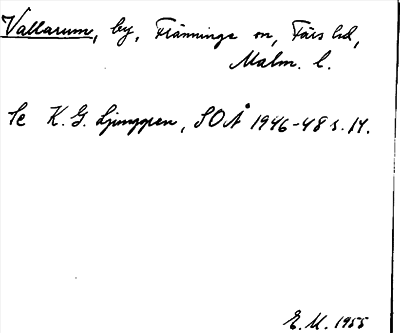 Vallarum, by, Fränninge sn, Färs hd,
Malm. l.
Se K. G. Ljunggren, SOÅ 1946-48 s. 14.
E. M. 1955